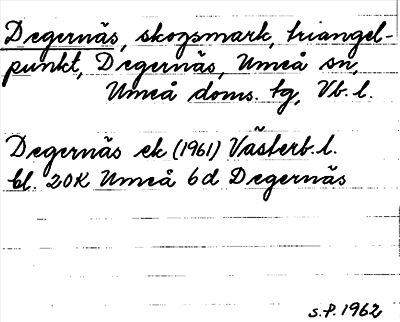 Degernäs, skogsmark, triangel-
punkt, Degernäs, Umeå sn,
Umeå doms. tg, Vb. l.
Degernäs ek (1961) Västerb. l.
bl. 20K Umeå 6d Degernäs
s.P. 1962